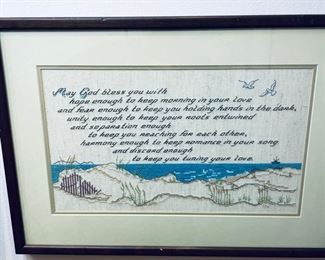 May God bless you with
hope enough to keep morning in your love
and fear enough to keep you holding hands in the dark,
unity enough to keep your roots entwined
and separation enough
to keep you reaching for each other,
harmony enough to keep romance in your song
and discord enough
to keep you tuning your love.